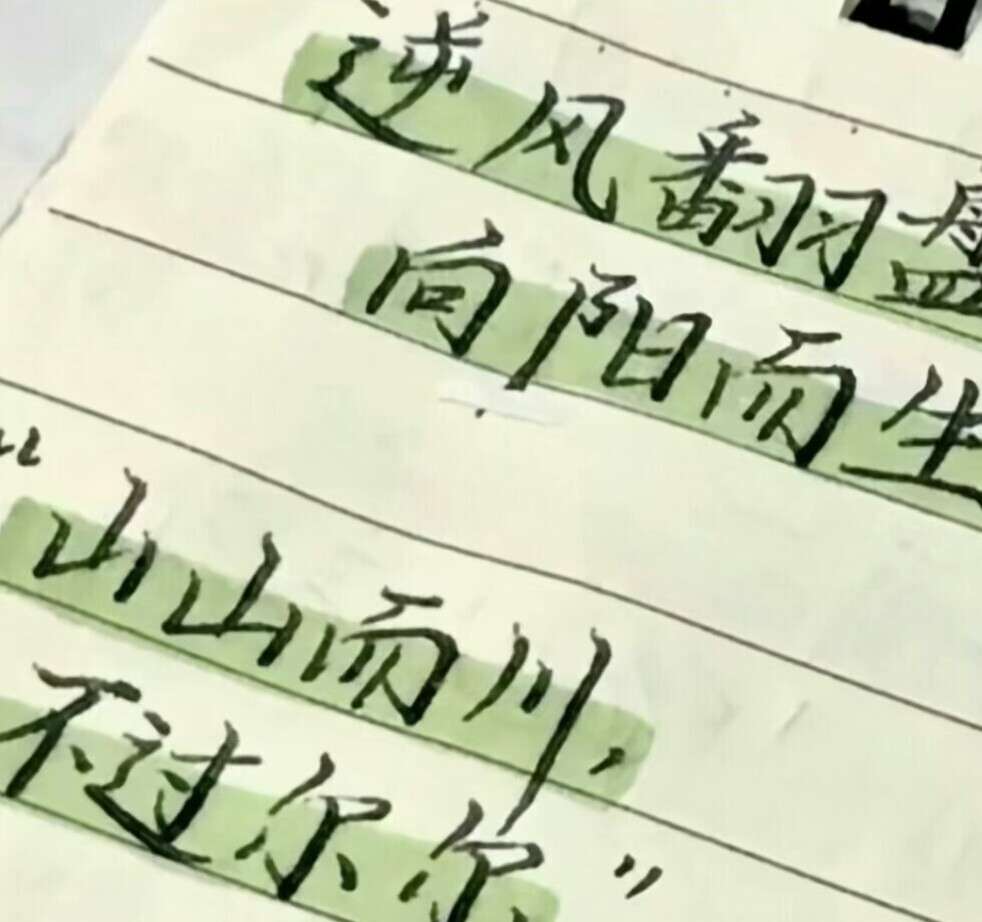 逆风翻盘
向阳而生
“山山而川,
不过尔尔.”